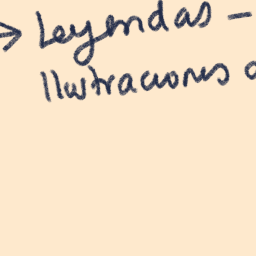 → Leyendas –
Ilustraciones